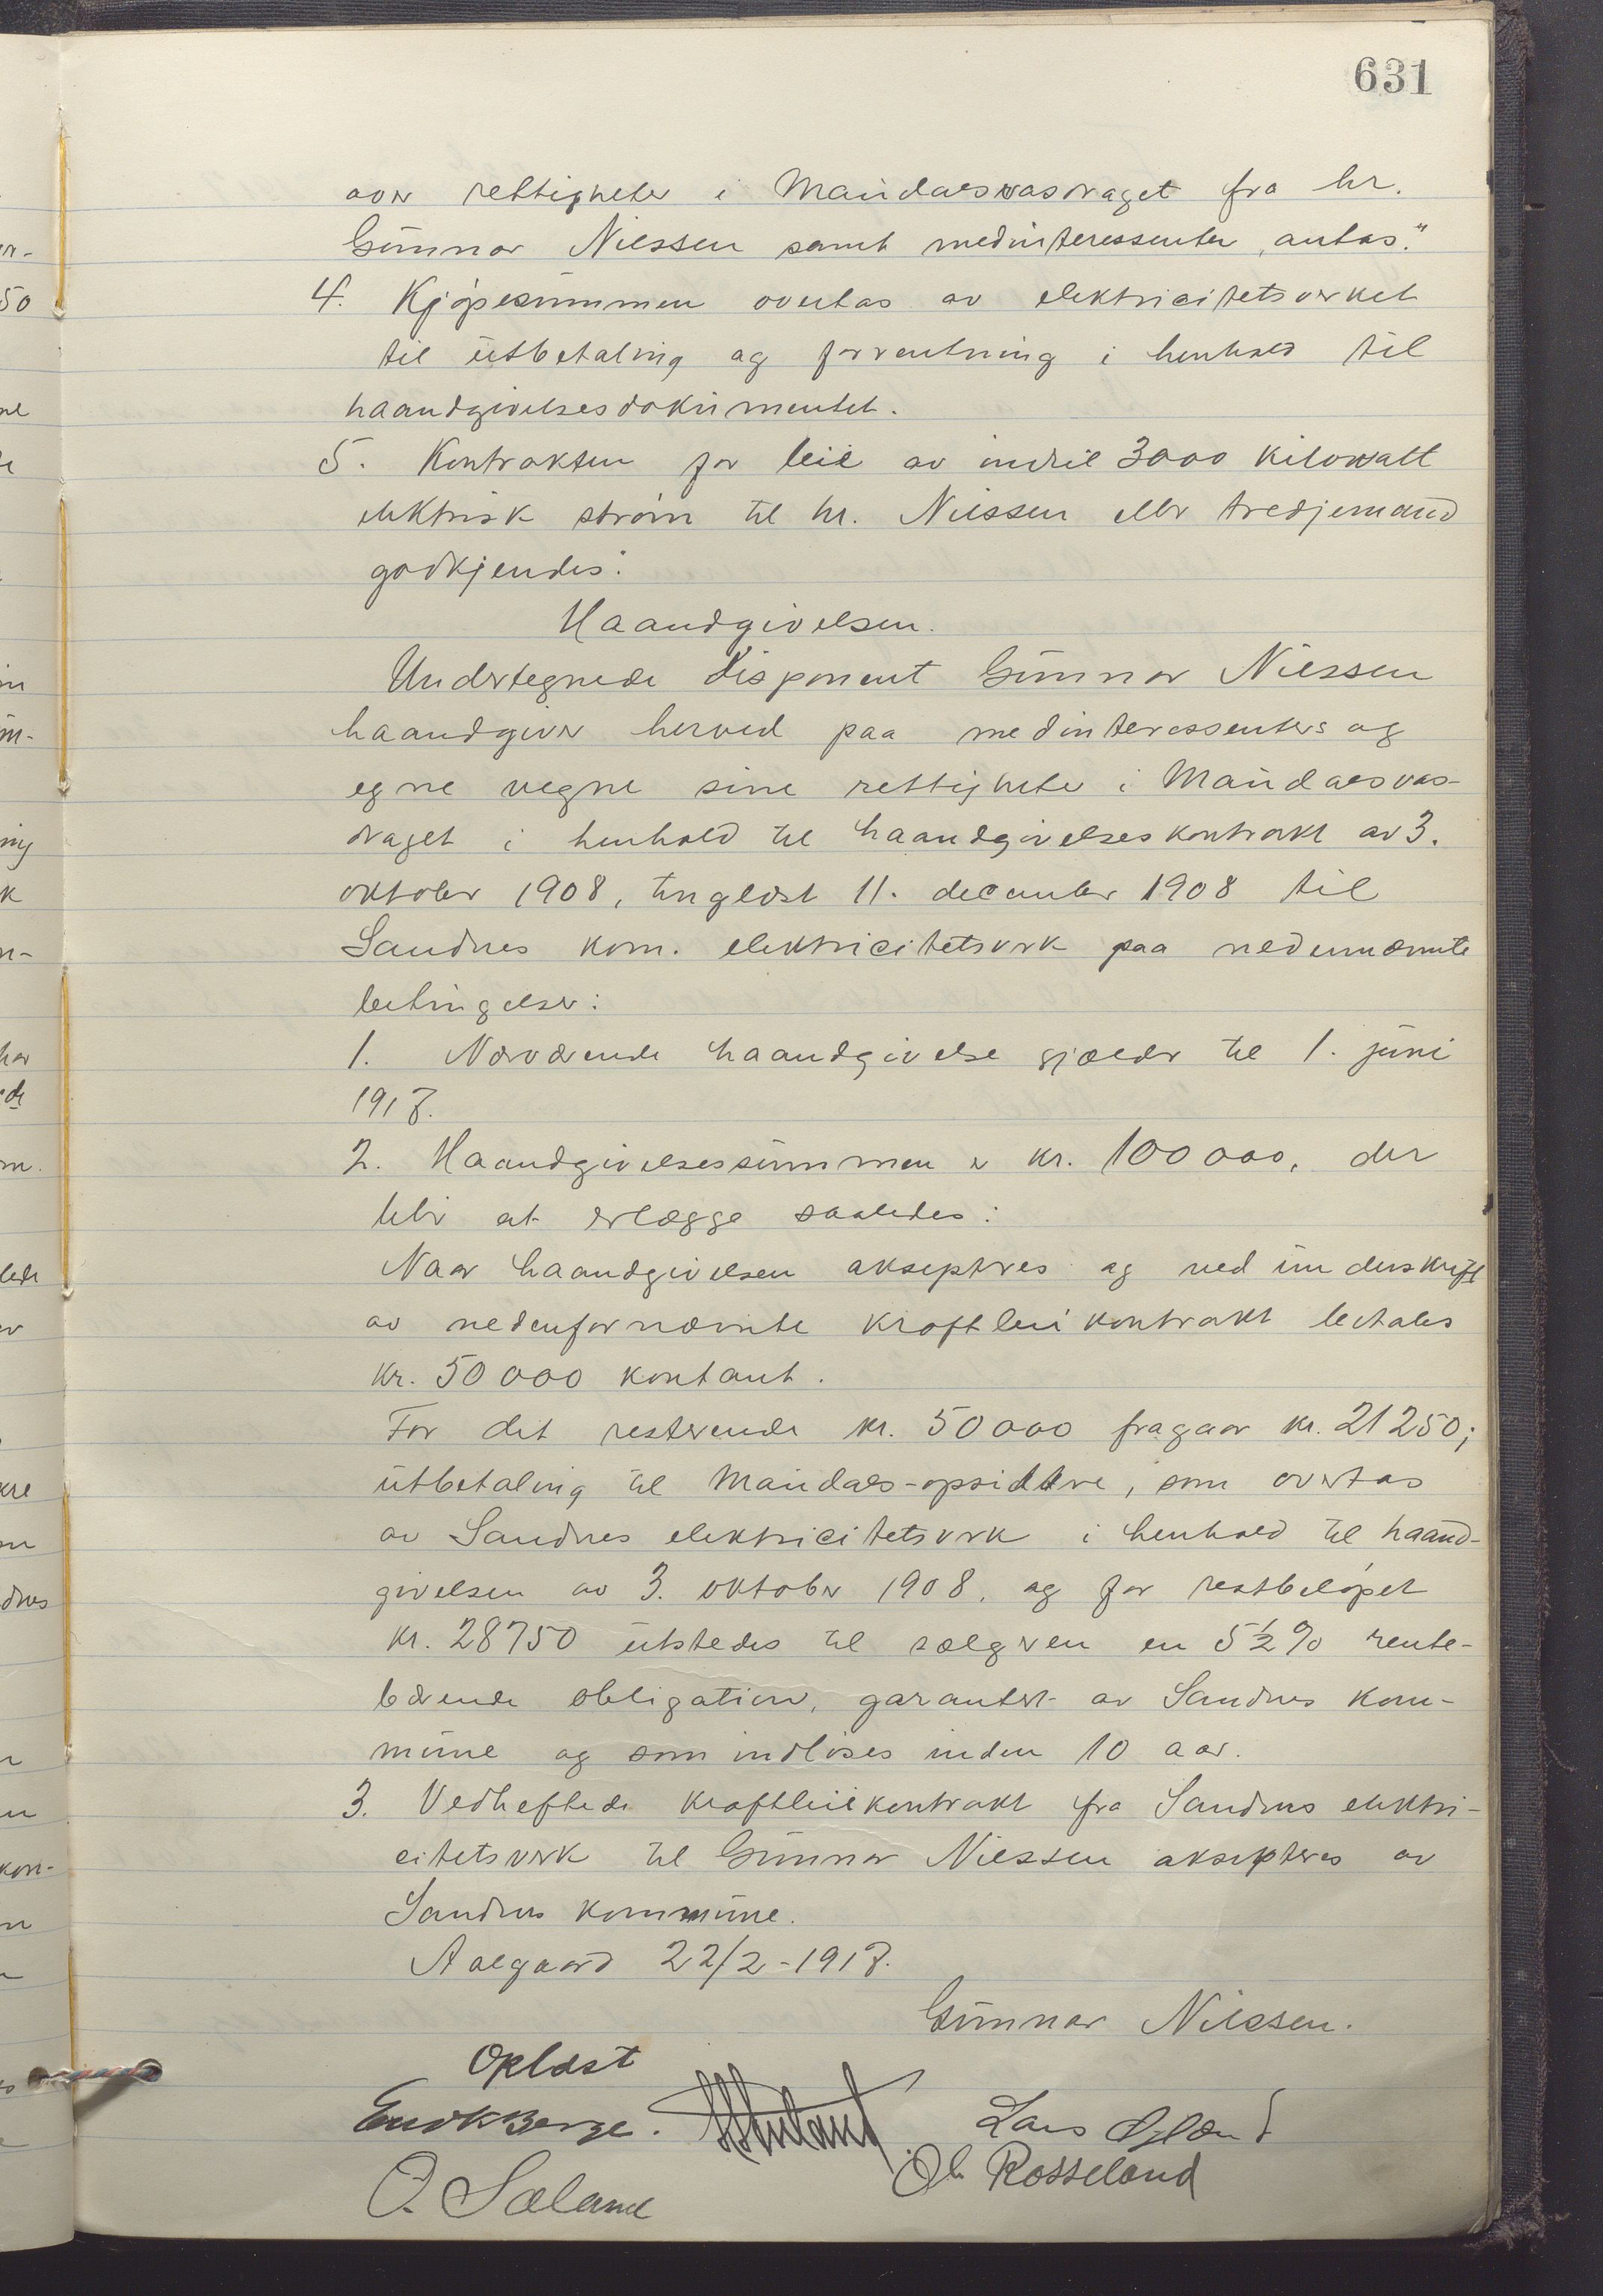 631
over rettigheter i Maudalsvasdraget fra hr.
Gunnar Nilssen samt medinteressenter, antas."
4. Kjøpesummen overtas av elektricitetsverket
til utbetaling og forrentning i henhold til
haandgivelsesdokumentet.
5. Kontrakten for leie av indtil 3000 kilowatt
elektrisk strøm til hr. Nilssen eller tredjemand
godkjendes."
Haandgivelsen.
Undertegnede disponent Gunnar Nilssen
haandgiver herved paa medinteressenters og
egne vegne sine rettigheter i Maudalsvas-
draget i henhold til haandgivelseskontrakt av 3.
oktober 1908, tinglæst 11. december 1908 til
Sandnes kom. elektricitetsverk paa nedennævnte
betingelser:
1. Nærværende haandgivelse gjælder til 1. juni
1917.
2. Haandgivelsessummen er kr. 100 000, der
blir at erlægge saaledes:
Naar haandgivelsen akseptres og ved underskrift
av nedenfornævnte kraftleiekontrakt betales
kr. 50 000 kontant.
For det resterende kr. 50 000 fragaar kr. 21 250;
utbetaling til Maudals-opsiddere, som overtas
av Sandnes elektricitetsverk i henhold til haand-
givelsen av 3. oktober 1908, og for restbeløpet
kr. 28750 utstedes til sælgeren en 5½% rente-
bærende obligation, garantert av Sandnes kom-
mune og som indløses inden 10 aar.
3. Vedheftede kraftleiekontrakt fra Sandnes elektri-
citetsverk til Gunnar Nilssen aksepteres av
Sandnes kommune.
Aalgaard 22/2-1917.
Gunnar Nilssen.
Oplæst
Enok Berge. Lars Øglænd
O. Sæland Ole Rosseland